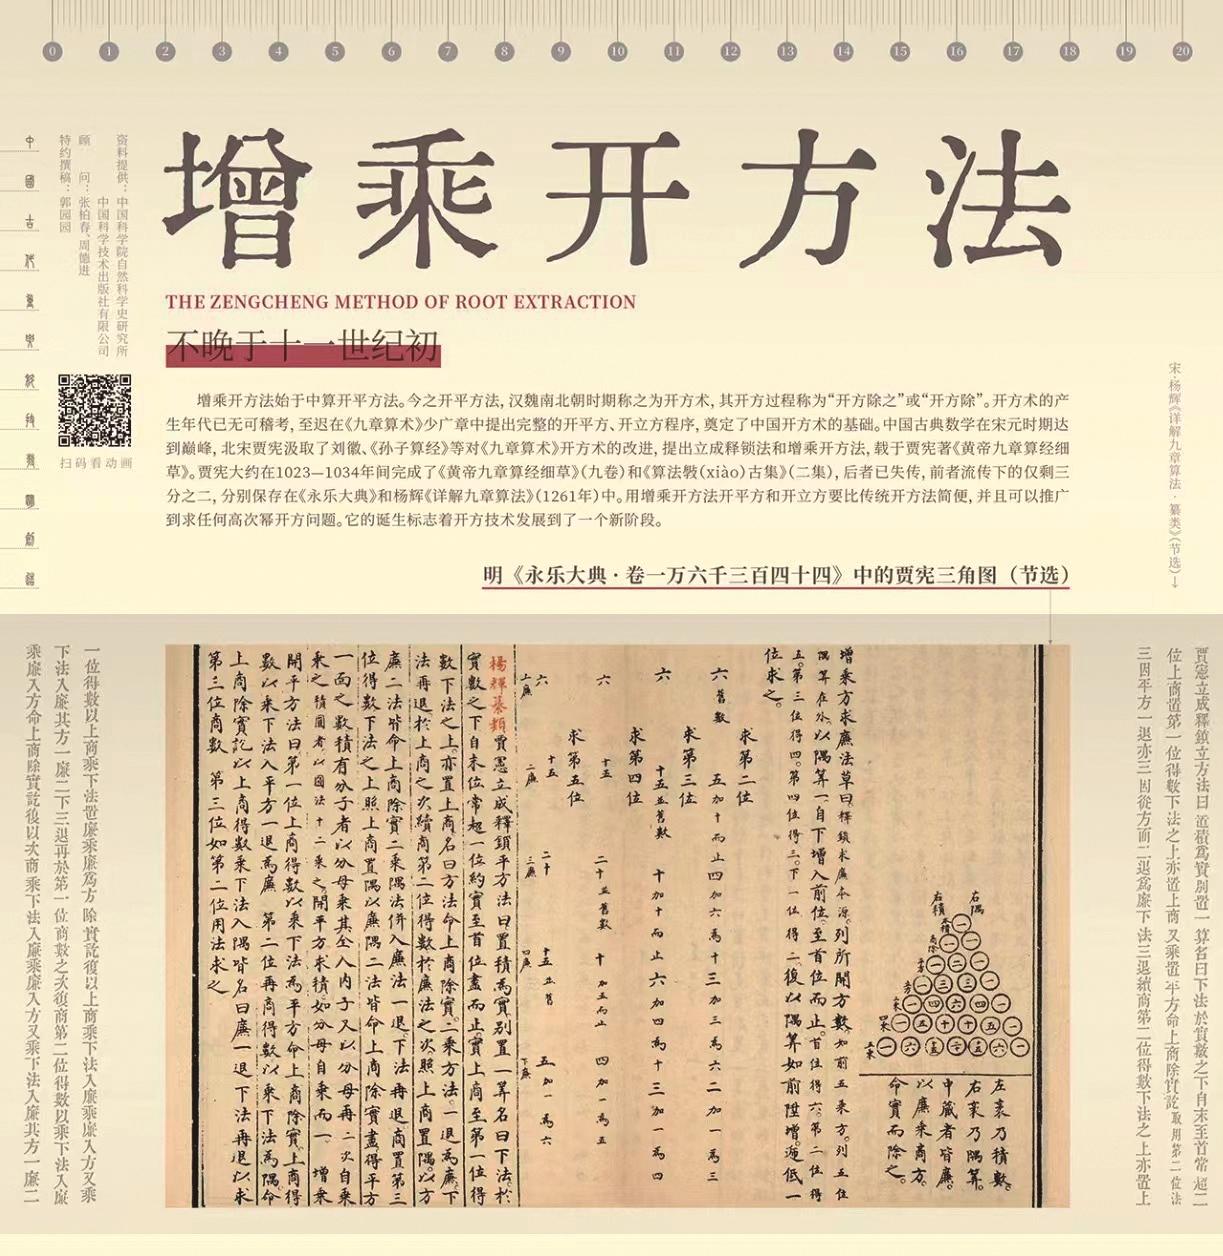 0 1 2 3 4 5 6 7 8 9 10 11 12 13 14 15 16 17 18 19 20
增乘开方法
THE ZENGCHENG METHOD OF ROOT EXTRACTION
不晚于十一世纪初
资料提供：中国科学院自然科学史研究所
中国科学技术出版社有限公司
顾 问：张柏春、周德进
特约撰稿：郭园园
扫码看动画
增乘开方法始于中算开平方法。今之开平方法，汉魏南北朝时期称之为开方术，其开方过程称为“开方除之”或“开方除”。开方术的产
生年代已无可稽考，至迟在《九章算术》少广章中提出完整的开平方、开立方程序，奠定了中国开方术的基础。中国古典数学在宋元时期达
到巅峰，北宋贾宪汲取了刘徽、《孙子算经》等对《九章算术》开方术的改进，提出立成释锁法和增乘开方法，载于贾宪著《黄帝九章算经细
草》。贾宪大约在1023—1034年间完成了《黄帝九章算经细草》（九卷）和《算法斅（xiào）古集》（二集），后者已失传，前者流传下的仅剩三
分之二，分别保存在《永乐大典》和杨辉《详解九章算法》（1261年）中。用增乘开方法开平方和开立方要比传统开方法简便，并且可以推广
到求任何高次幂开方问题。它的诞生标志着开方技术发展到了一个新阶段。
明《永乐大典·卷一万六千三百四十四》中的贾宪三角图（节选）
宋·杨辉《详解九章算法·纂类》（节选）↓
賈憲立成釋鎖立方法曰置積爲實別置一算名曰下法於實數之下自末至首常超二
位上商置第一位得數下法之上亦置上商又乘置平方命上商除實訖取用第二位法
三因平方一退亦三因從方而二退爲廉下法三退續商第二位得數下法之上亦置上
增乘方求廉法草曰釋鎖求廉本源。列所開方數。如前五乘方。列五位
隅算在外。以隅算一自下增入前位。至首位而止。首位得六。第二位得
五。第三位得四。第四位得三。下一位得二。復以隅算如前陞增。遞低一
位求之。
右積 右隅
左袤乃積數。
右袤乃隅算。
中藏者皆廉。
以廉乘商方。
命實而除之。
求第二位
六舊數 五加十而止 四加六爲十 三加三爲六 二加一爲三
求第三位
六 十五並舊數 十加十而止 六加四爲十 三加一爲四
求第四位
六 十五 二十並舊數 十加五而止 四加一爲五
求第五位
六 十五 二十 十五並舊 五加一爲六
上廉 二廉 三廉 四廉 下廉
楊輝纂類賈憲立成釋鎖平方法曰置積爲實別置一算名曰下法。於
實數之下自末位常超一位約實至首位盡而止。實上商至第一位得
數下法之上。亦置上商名曰方法命上商除實。二乘方法。一退爲廉。下
法再退於上商之次續商第二位得數於廉法之次。照上商置隅。以方
廉二法皆命上商除實二乘隅法併入廉法一退。下法再退商置第三
位得數下法之上照上商置隅以廉隅二法皆命上商除實盡得平方
一面之數積有分子者以分母乘其全入內子又以分母再二次自乘
開平方法曰第一位上商得數以乘下法爲平方命上商除實上商得
數以乘下法入平方一退爲廉 第二位再商得數以乘下法爲隅命
上商除實訖以上商得數乘下法入隅皆名曰廉一退下法再退以求
第三位商數 第三位如第二位用法求之
一位得數以上商乘下法置廉乘廉爲方除實訖復以上商乘下法入廉乘廉入方又乘
下法入廉其方一廉二下三退再於第一位商數之次復商第二位得數以乘下法入廉
乘廉入方命上商除實訖復以次商乘下法入廉乘廉入方又乘下法入廉其方一廉二